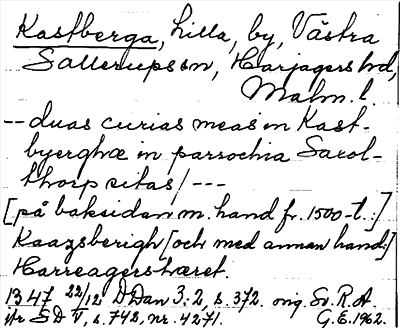 Kastberga, Lilla, by, Västra
Sallerups sn, Harjagers hd,
Malm. l.
-- duas curias meas in Kast-
byerghæ in parrochia Saxol-
thorp sitas / ---
[på baksidan m. hand fr. 1500-t.:]
Kaazsberigh [och med annan hand:]
Harreagershæret.
1347 22/12 DDan 3:2, s. 372. orig. Sv. R. A.
jfr SD V, s. 742, nr. 4271. G.E. 1962.